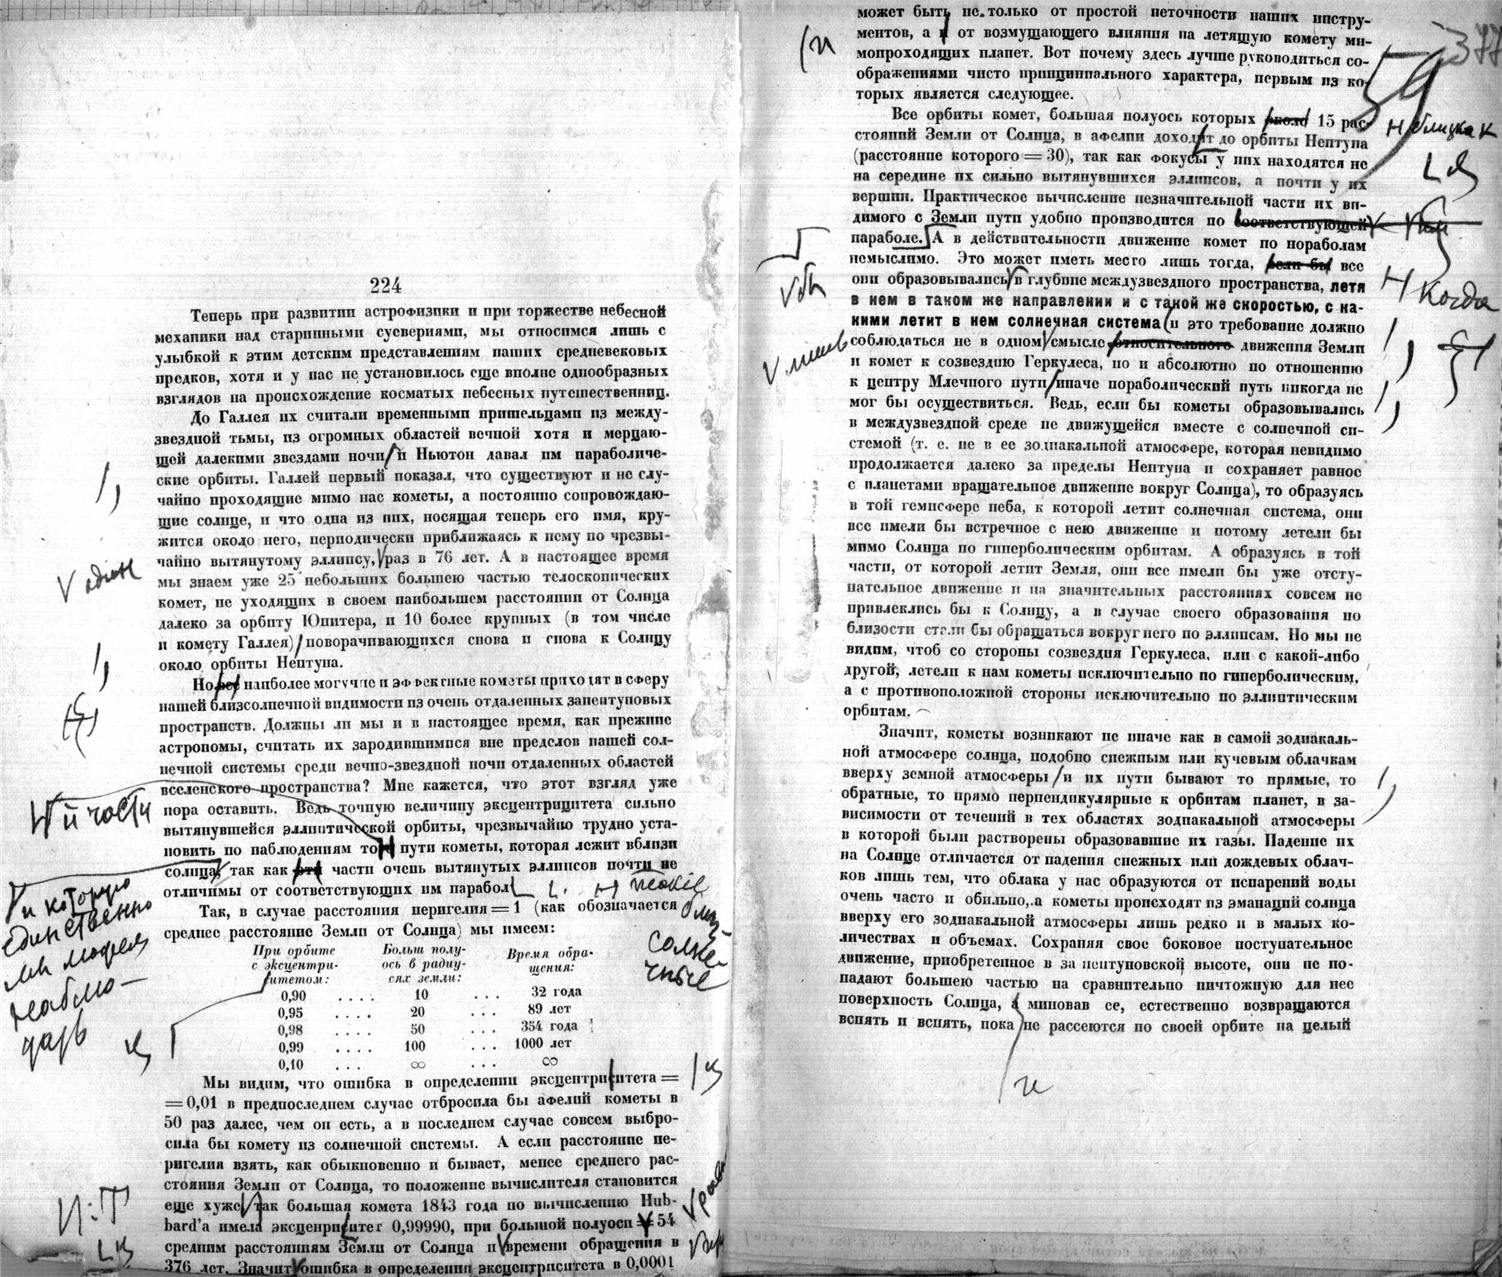 224
Теперь при развитии астрофизики и при торжестве небесной
механики над старинными суевериями, мы относимся лишь с
улыбкой к этим детским представлениям наших средневековых
предков, хотя и у нас не установилось еще вполне однообразных
взглядов на происхождение косматых небесных путешественниц.
До Галлея их считали временными пришельцами из между-
звездной тьмы, из огромных областей вечной хотя и мерцаю-
щей далекими звездами ночи и Ньютон давал им параболиче-
ские орбиты. Галлей первый показал, что существуют и не слу-
чайно проходящие мимо нас кометы, а постоянно сопровождаю-
щие солнце, и что одна из них, носящая теперь его имя, кру-
жится около него, периодически приближаясь к нему по чрезвы-
чайно вытянутому эллипсу, раз в 76 лет. А в настоящее время
V один
мы знаем уже 25 небольших большею частью телоскопических
комет, не уходящих в своем наибольшем расстоянии от Солнца
далеко за орбиту Юпитера, и 10 более крупных (в том числе
и комету Галлея) поворачивающихся снова и снова к Солнцу
около орбиты Нептуна.
Но все наиболее могучие и эффектные кометы приходят в сферу
нашей близсолнечной видимости из очень отдаленных занептуновых
пространств. Должны ли мы и в настоящее время, как прежние
астрономы, считать их зародившимися вне пределов нашей сол-
нечной системы среди вечно-звездной ночи отдаленных областей
вселенского пространства? Мне кажется, что этот взгляд уже
й части
пора оставить. Ведь точную величину эксцентрицитета сильно
вытянувшейся эллиптической орбиты, чрезвычайно трудно уста-
новить по наблюдениям того пути кометы, которая лежит вблизи
солнца, так как эти части очень вытянутых эллипсов почти не
отличимы от соответствующих им парабол
и которую
единственно
мы можем
наблю-
дать
такие
близ-
солне-
чные
Так, в случае расстояния перигелия = 1 (как обозначается
среднее расстояние Земли от Солнца) мы имеем:
При орбите Больш полу- Время обра-
с эксцентри- ось в радиу- щения:
ситетом: сях земли:
0,90 .... 10 ... 32 года
0,95 .... 20 ... 89 лет
0,98 .... 50 ... 354 года
0,99 .... 100 ... 1000 лет
0,10 .... ∞ ... ∞
Мы видим, что ошибка в определении эксцентриситета =
= 0,01 в предпоследнем случае отбросила бы афелий кометы в
50 раз далее, чем он есть, а в последнем случае совсем выбро-
сила бы комету из солнечной системы. А если расстояние пе-
ригелия взять, как обыкновенно и бывает, менее среднего рас-
стояния Земли от Солнца, то положение вычислителя становится
еще хуже так большая комета 1843 года по вычислению Hub-
bard'a имела эксценриситет 0,99990, при большой полуоси = 54
средним расстояниям Земли от Солнца и времени обращения в
376 лет. Значит ошибка в определении эксцентриситета в 0,0001
377
59
может быть не только от простой неточности наших инстру-
ментов, а и от возмущающего влияния на летящую комету ми-
мопроходящих планет. Вот почему здесь лучше руководиться со-
ображениями чисто принципиального характера, первым из ко-
торых является следующее.
Все орбиты комет, большая полуось которых около 15 рас-
близка к
стояний Земли от Солнца, в афелии доходят до орбиты Нептуна
(расстояние которого = 30), так как фокусы у них находятся не
на середине их сильно вытянувшихся эллипсов, а почти у их
вершин. Практическое вычисление незначительной части их ви-
димого с Земли пути удобно производится по соответствующей
параболе. А в действительности движение комет по пораболам
немыслимо. Это может иметь место лишь тогда, если бы все
когда
они образовывались в глубине междузвездного пространства, летя
V бы
в нем в таком же направлении и с такой же скоростью, с ка-
кими летит в нем солнечная система и это требование должно
соблюдаться не в одном смысле относительного движения Земли
V лишь
и комет к созвездию Геркулеса, но и абсолютно по отношению
к центру Млечного пути иначе пораболический путь никогда не
мог бы осуществиться. Ведь, если бы кометы образовывались
в междузвездной среде не движущейся вместе с солнечной си-
стемой (т. е. не в ее зодиакальной атмосфере, которая невидимо
продолжается далеко за пределы Нептуна и сохраняет равное
с планетами вращательное движение вокруг Солнца), то образуясь
в той гемисфере неба, к которой летит солнечная система, они
все имели бы встречное с нею движение и потому летели бы
мимо Солнца по гиперболическим орбитам. А образуясь в той
части, от которой летит Земля, они все имели бы уже отсту-
пательное движение и на значительных расстояниях совсем не
привлеклись бы к Солнцу, а в случае своего образования по
близости стали бы обращаться вокруг него по эллипсам. Но мы не
видим, чтоб со стороны созвездия Геркулеса, или с какой-либо
другой, летели к нам кометы исключительно по гиперболическим,
а с противоположной стороны исключительно по эллиптическим
орбитам.
Значит, кометы возникают не иначе как в самой зодиакаль-
ной атмосфере солнца, подобно снежным или кучевым облачкам
вверху земной атмосферы и их пути бывают то прямые, то
обратные, то прямо перпендикулярные к орбитам планет, в за-
висимости от течений в тех областях зодиакальной атмосферы
в которой были растворены образовавшие их газы. Падение их
на Солнце отличается от падения снежных или дождевых облач-
ков лишь тем, что облака у нас образуются от испарений воды
очень часто и обильно, а кометы происходят из эманаций солнца
вверху его зодиакальной атмосферы лишь редко и в малых ко-
личествах и объемах. Сохраняя свое боковое поступательное
движение, приобретенное в за нептуновской высоте, они не по-
падают большею частью на сравнительно ничтожную для нее
поверхность Солнца, а миновав ее, естественно возвращаются
вспять и вспять, пока не рассеются по своей орбите на целый